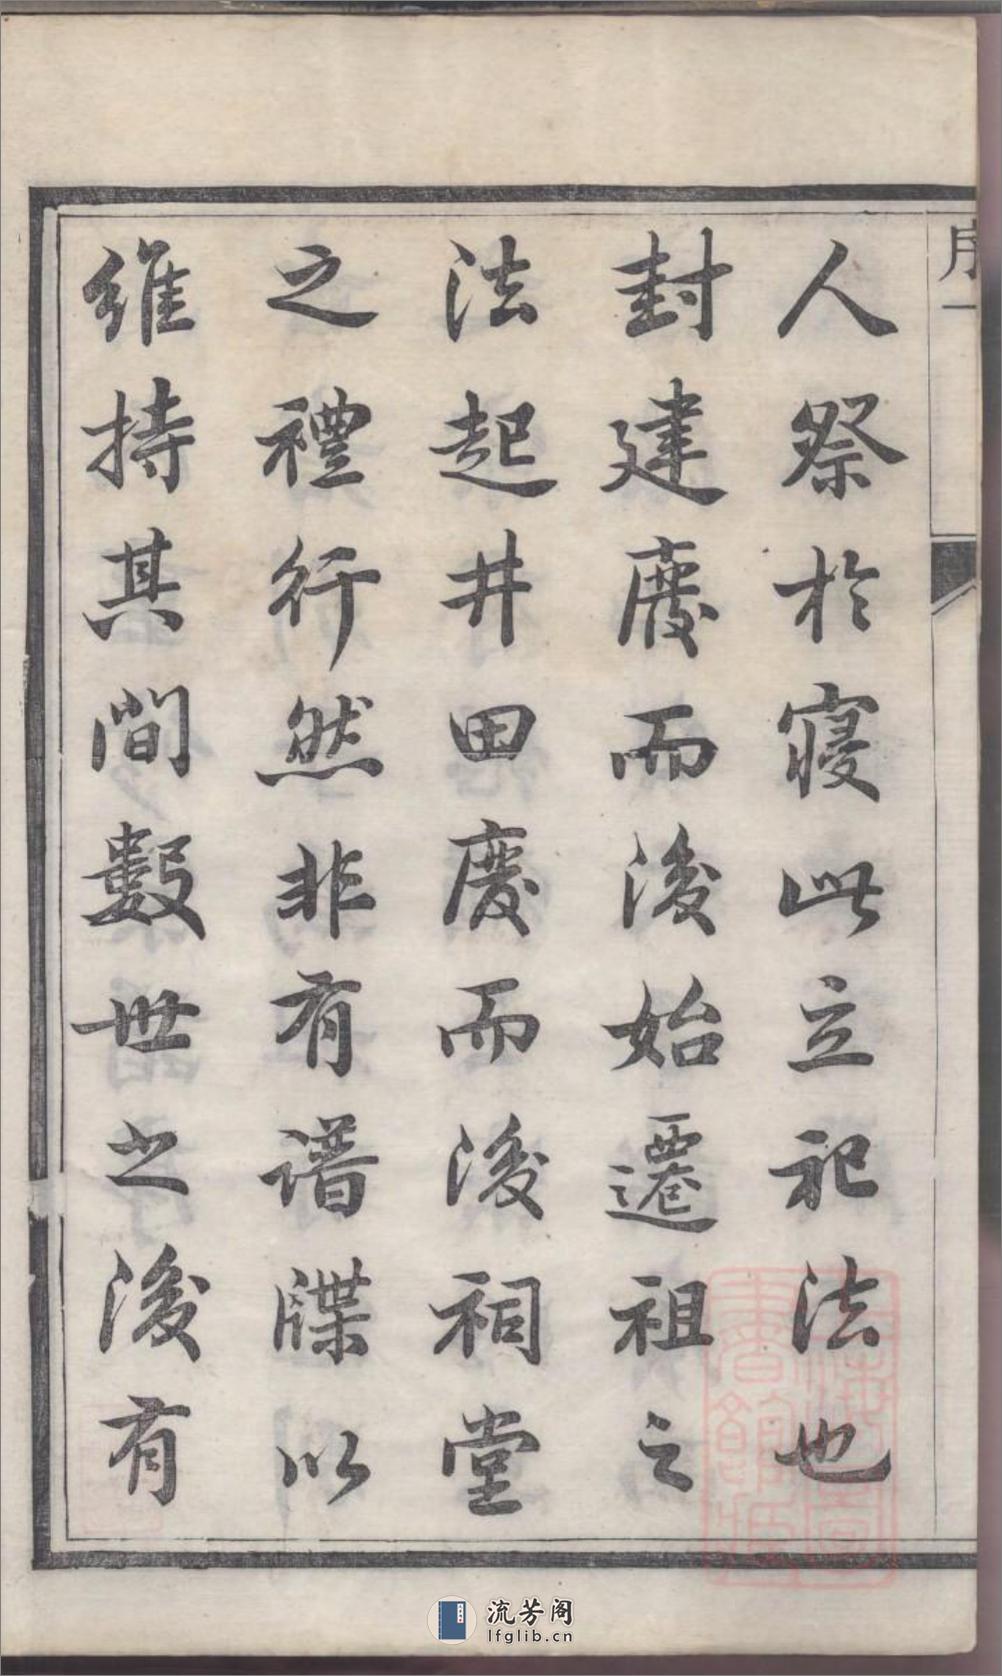 序一
人祭於寢此立祀法也
封建廢而後始遷祖之
法起井田廢而後祠堂
之禮行然非有譜牒以
維持其間數世之後有
流芳阁
lfglib.cn